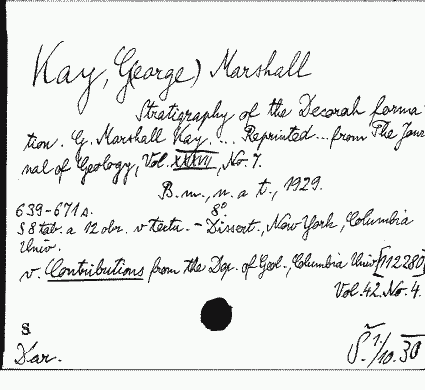 Kay, G(eorge) Marshall
Stratigraphy of the Decorah forma-
tion. G. Marshall Kay. ... Reprinted ... from The Jour-
nal of Geology, Vol. XXXVII, No. 7.
B. m., n. a t., 1929.
639-671 s. 8°
S 8 tab. a 12 obr. v textu. - Dissert., New York, Columbia
Univ.
v. Contributions from the Dep. of Geol., Columbia Univ. [112280]
Vol. 42. No. 4.
S
Dar.
Š. 1./10. 30